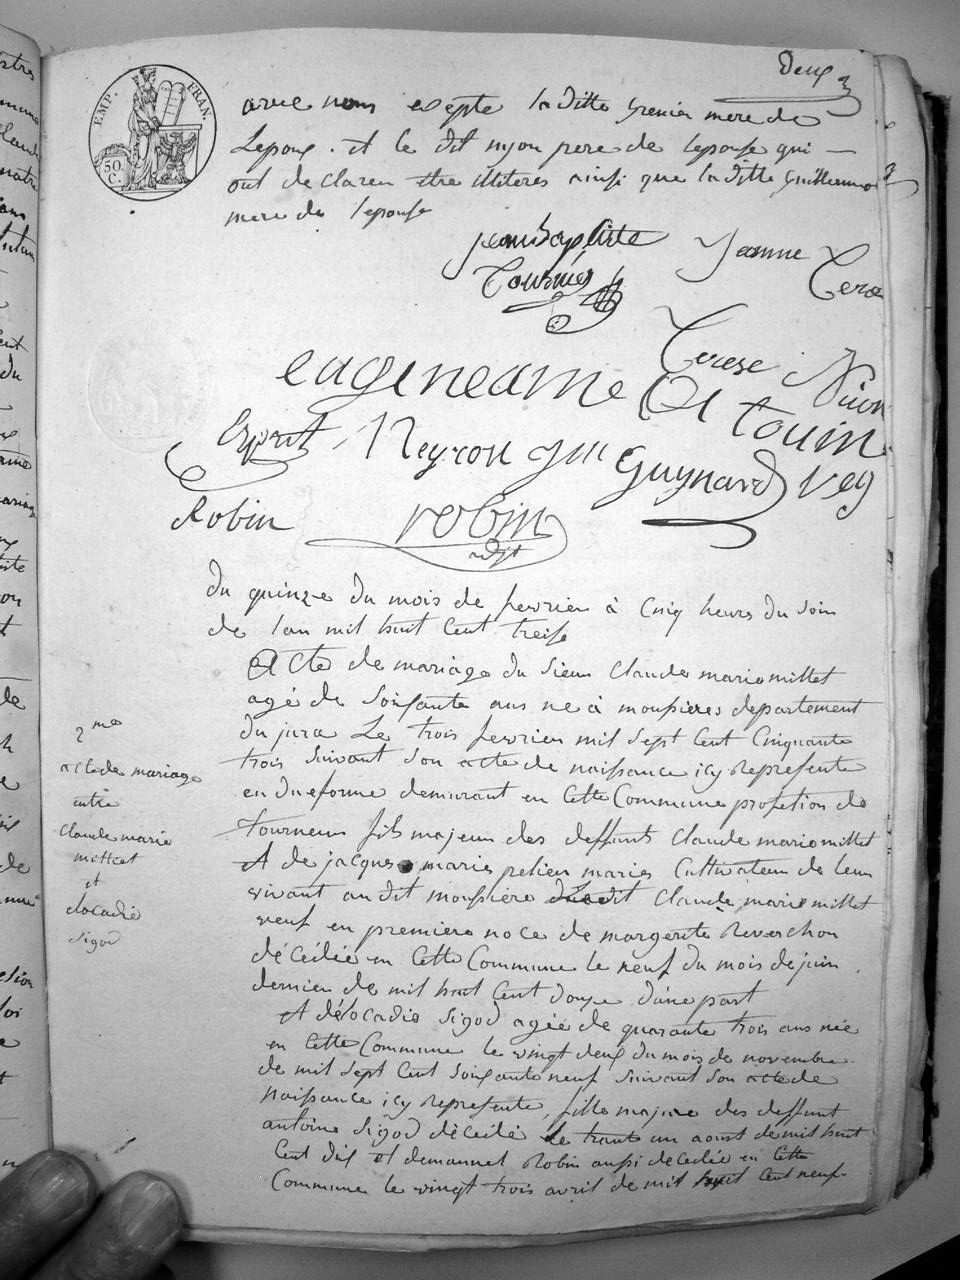 Deux
EMP. FRAN.
50 C.
avec nous excepte laditte grenier mere de
lepoux . et le dit nyon pere de lepouse qui —
ont declaren etre illiteres ainsi que laditte guillermo
mere de lepouse
jean baptiste Jeanne
tournier
terese Nion
eugeneame
Esprit Neyron gm Guynard Vey
Robin robin
adjt
du quinze du mois de fevrier à Cinq heures du soir
de lan mil huit Cent treise
Acte de mariage du sieur Claude marie millet
agé de Soixante ans né à mouſieres departement
du jura Le trois fevrier mil sept Cent Cinquante
trois suivant son acte de naissance icy represente
en due forme demurant en Cette Commune profetion de
tourneur fils majeur des deffunts Claude marie millet
et de jacques marie pelier maries Cultivateur de leur
vivant au dit mouſiere ledit Claude marie millet
veuf en premiere noce de margerite Reverchon
décédée en Cette Commune le neuf du mois de juin
dernier de mil huit Cent douze dune part
2me
acte de mariage
entre
Claude marie
mettet
et
elocadie
sigod
et délocadie sigod agée de quarante trois ans née
en Cette Commune le vingt deux du mois de novembre
de mil sept Cent Soixante neuf suivant son acte de
naissance icy represente, fille majure des deffunt
antoine sigod décédé le trante un aoust de mil huit
Cent dix et demannet Robin aussi decedée en Cette
Commune le vingt trois avril de mil huit Cent neuf